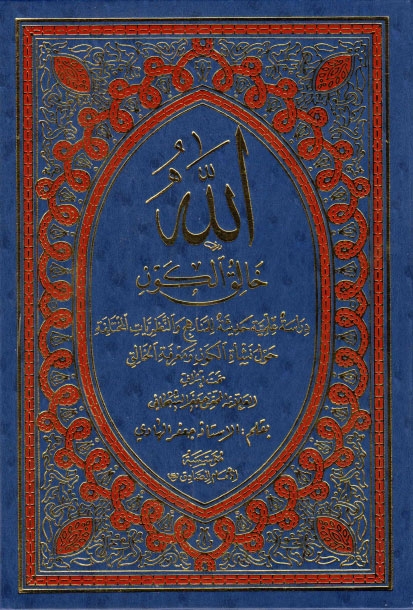 الله
خالق الكون
دراسة علمية حديثة للمناهج والنظريات المختلفة
حول نشأة الكون ومعرفة الخالق
تحت إشراف
العلامة المحقق جعفر السبحاني
بقلم: الأستاذ جعفر الهادي
مؤسسة
الإمام الصادق (ع)